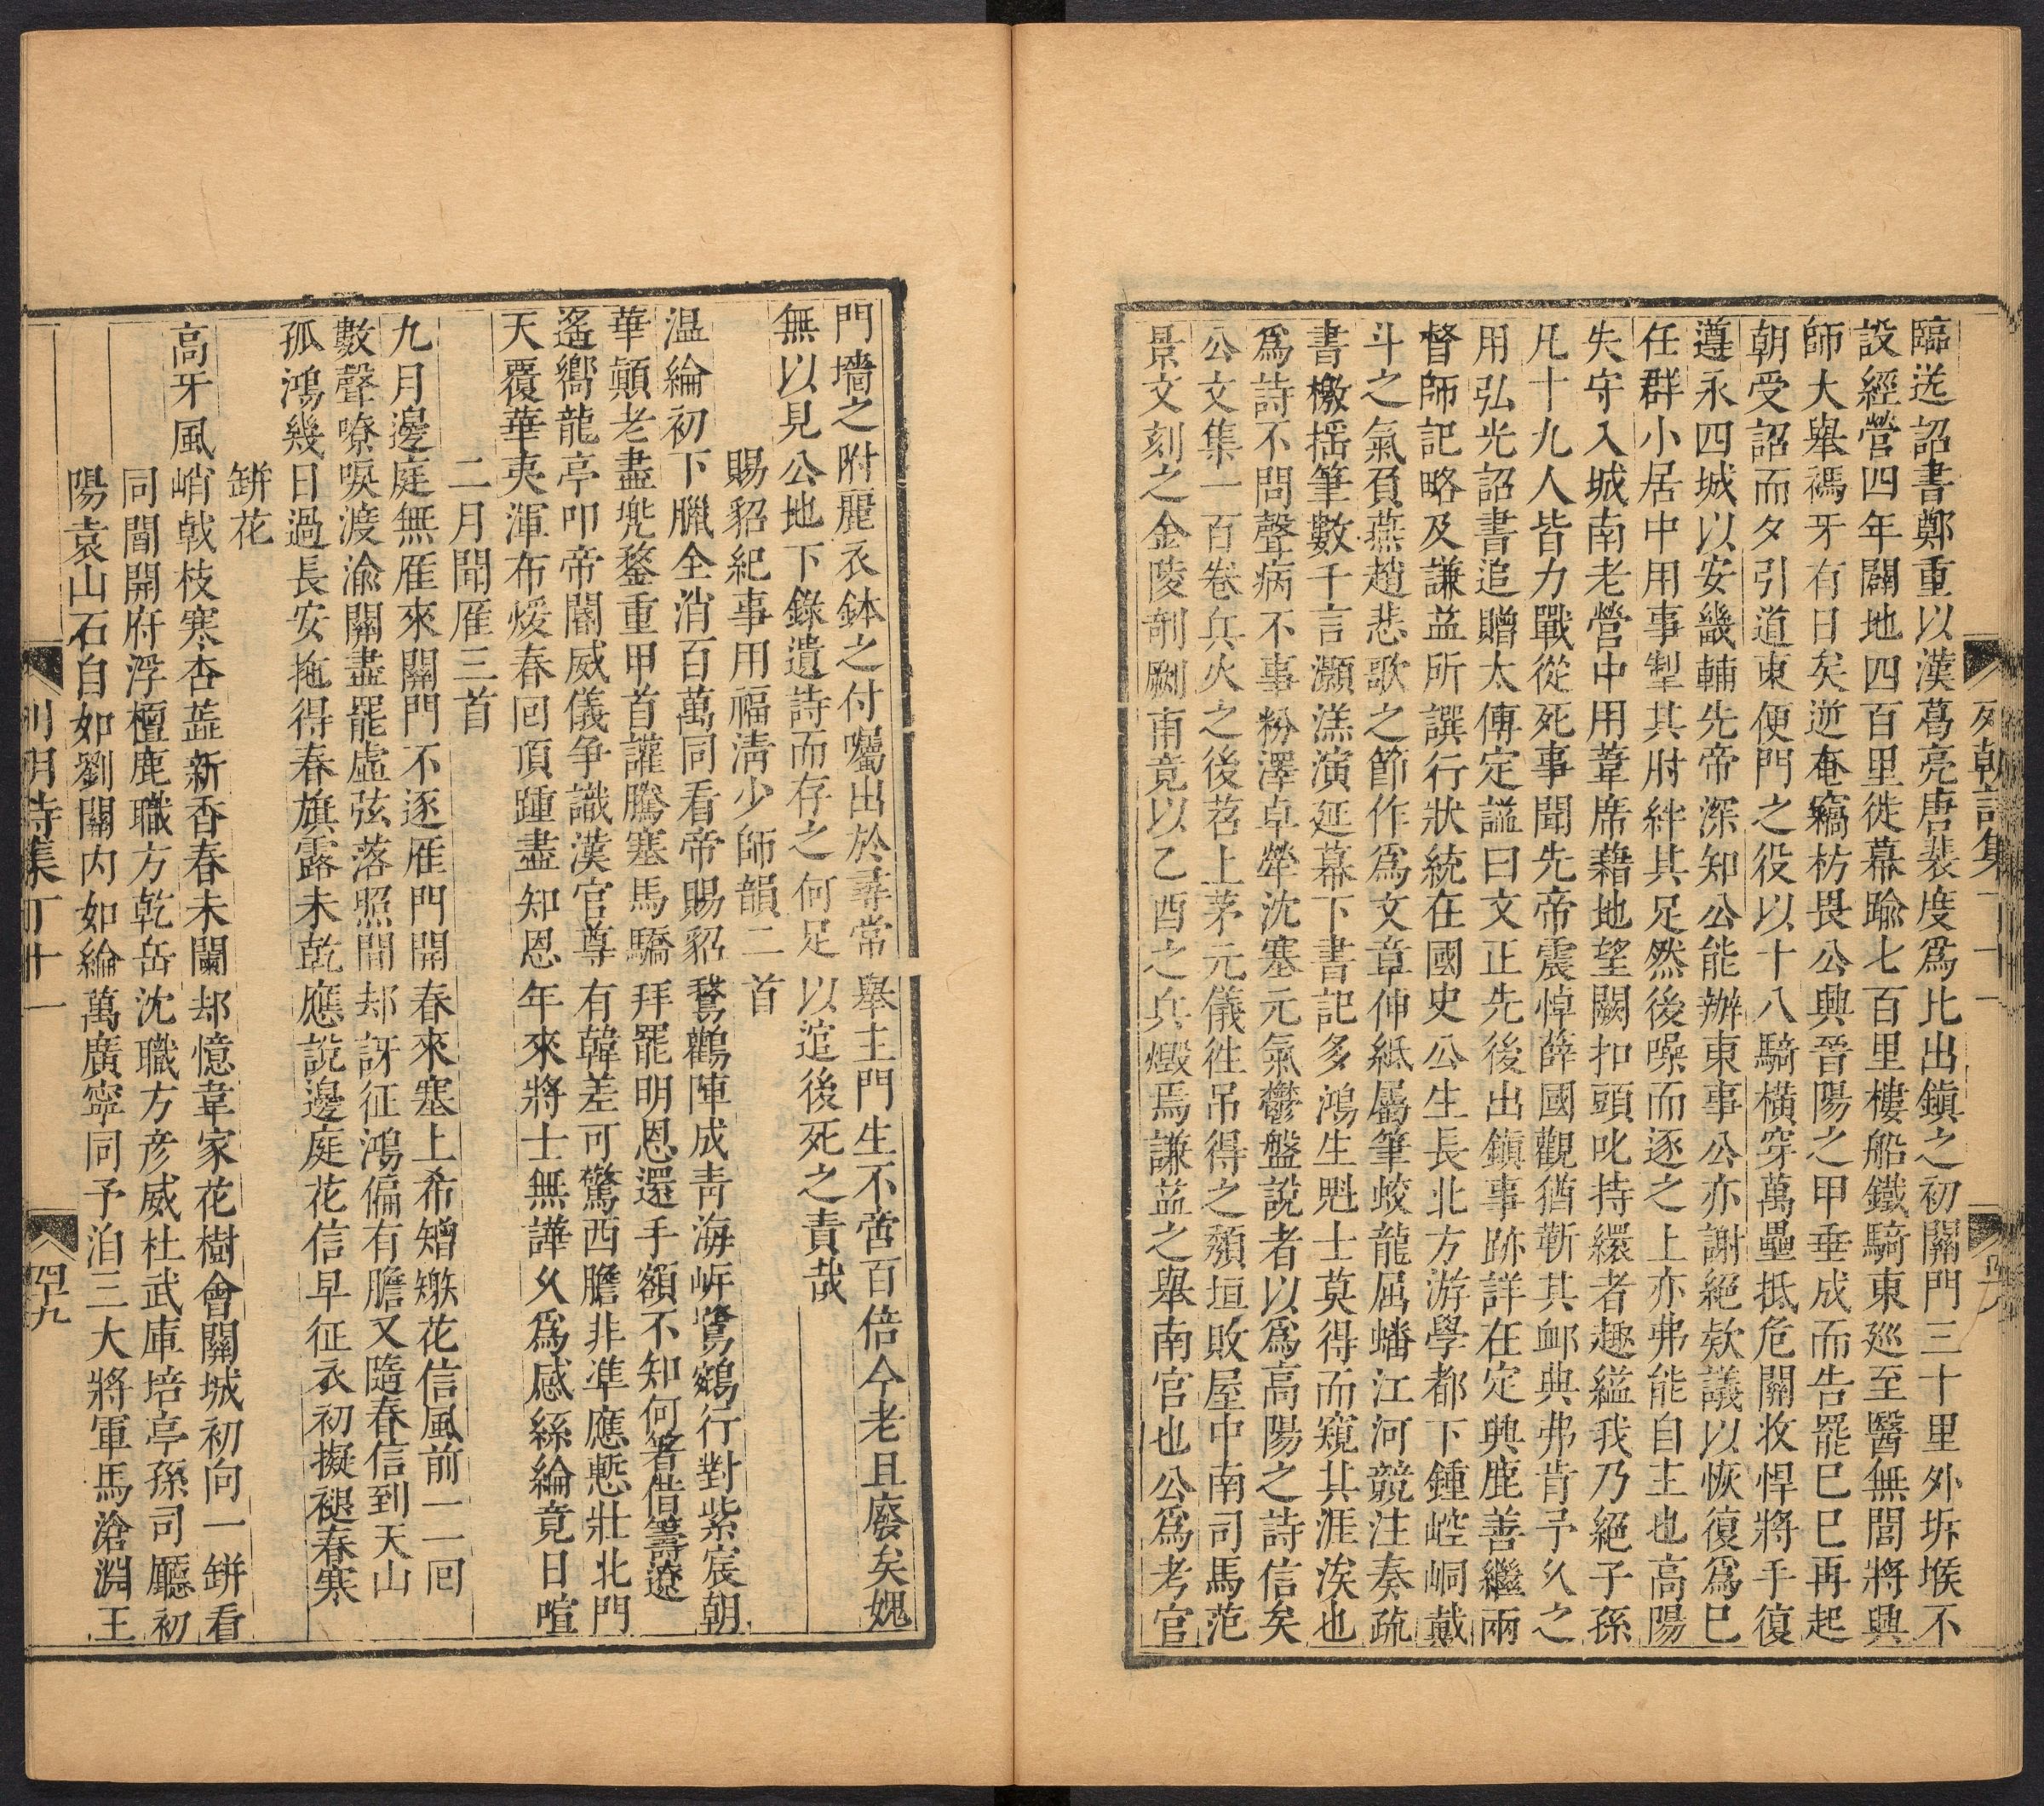 臨送詔書鄭重以漢葛亮唐裴度爲比出鎭之初關門三十里外坼堠不
設經營四年闢地四百里徙幕踰七百里樓船鐵騎東廵至醫無閭將興
師大舉禡牙有日矣逆奄竊枋畏公興晉陽之甲垂成而告罷巳巳再起
朝受詔而夕引道東便門之役以十八騎橫穿萬壘抵危關收悍將手復
遵永四城以安畿輔先帝深知公能辦東事公亦謝絕欵議以恢復爲巳
任群小居中用事掣其肘絆其足然後噪而逐之上亦弗能自主也高陽
失守入城南老營中用葦席藉地望闕扣頭叱持繯者趣縊我乃絕子孫
凡十九人皆力戰從死事聞先帝震悼薛國觀猶靳其衈典弗肯予久之
用弘光詔書追贈太傅定謚曰文正先後出鎭事跡詳在定興鹿善繼兩
督師記略及謙益所譔行狀統在國史公生長北方游學都下鍾崆峒戴
斗之氣負燕趙悲歌之節作爲文章伸紙屬筆蛟龍屈蟠江河競注奏疏
書檄揺筆數千言灝溔演延幕下書記多鴻生魁士莫得而窺其涯涘也
爲詩不問聲病不事粉澤卓犖沈塞元氣鬱盤說者以爲高陽之詩信矣
公文集一百卷兵火之後苕上茅元儀徃吊得之頽垣敗屋中南司馬范
景文刻之金陵剞劂甫竟以乙酉之兵燬焉謙益之舉南官也公爲考官
列朝詩集丁十一
門墻之附麗衣鉢之付囑出於尋常舉主門生不啻百倍今老且廢矣媿
無以見公地下錄遺詩而存之何足以逭後死之責哉
賜貂紀事用福淸少師韻二首
温綸初下臘全消百萬同看帝賜貂鵞鸛陣成靑海岍鴛鵷行對紫宸朝
華顚老盡兠鍪重甲首讙騰塞馬驕拜罷明恩還手額不知何箸借籌遼
遙嚮龍亭叩帝閽威儀爭識漢官尊有韓差可驚西膽非凖應慙壯北門
天覆華夷渾布煖春回頂踵盡知恩年來將士無譁久爲感絲綸竟日喧
二月聞雁三首
九月邊庭無雁來關門不逐雁門開春來塞上希矰繳花信風前一一回
數聲嘹唳渡渝關盡罷虛弦落照間却訝征鴻偏有膽又隨春信到天山
孤鴻幾日過長安拖得春旗露未乾應說邊庭花信早征衣初擬褪春寒
缾花
高牙風峭戟枝寒杏蕋新香春未闌却憶韋家花樹會關城初向一缾看
同閻開府浮檀鹿職方乾岳沈職方彦威杜武庫培亭孫司廳初
陽袁山石自如劉關内如綸萬廣寧同予泊三大將軍馬滄淵王
列朝詩集丁十一
四十九